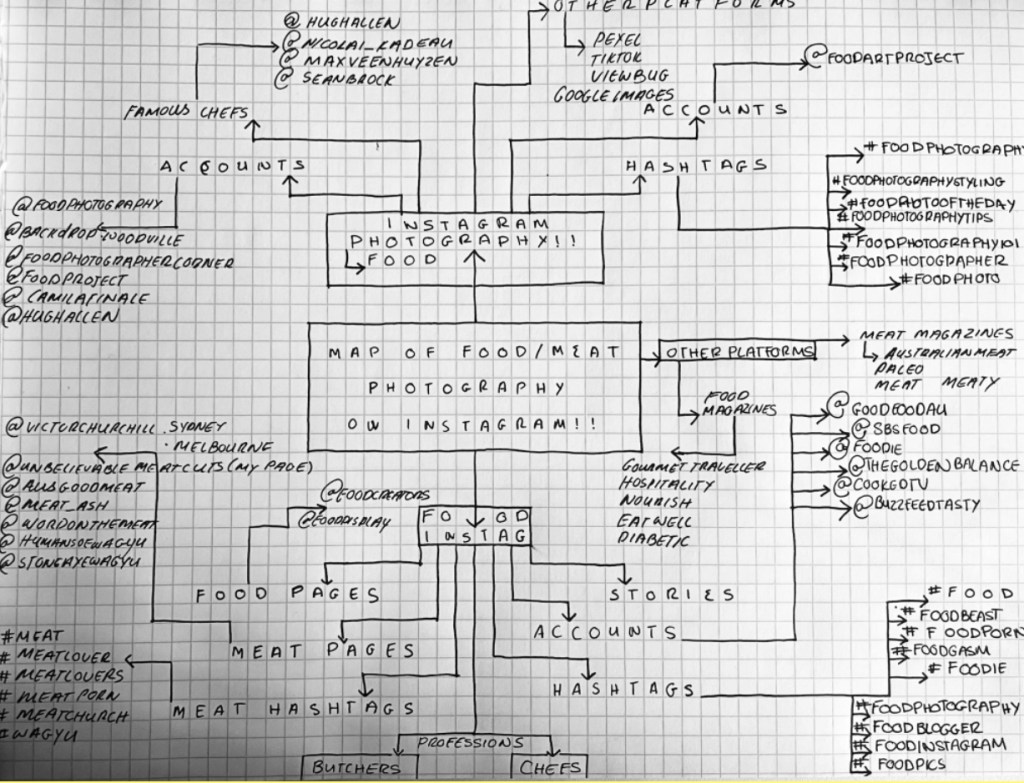 OTHER PLATFORMS
PEXEL
TIKTOK
VIEWBUG
GOOGLE IMAGES
@ HUGHALLEN
@ NICOLAI_KADEAU
@ MAXVEENHUYZEN
@ SEANBROCK
FAMOUS CHEFS
ACCOUNTS
@FOODARTPROJECT
ACCOUNTS
HASHTAGS
# FOODPHOTOGRAPHY
#FOODPHOTOGRAPHYSTYLING
#FOODPHOTOOFTHEDAY
#FOODPHOTOGRAPHYTIPS
#FOODPHOTOGRAPHY101
#FOODPHOTOGRAPHER
#FOODPHOTO
@FOODPHOTOGRAPHY
@BACKDROPSWOODVILLE
@FOODPHOTOGRAPHERCORNER
@FOODPROJECT
@ CAMILAFINALE
@HUGHALLEN
INSTAGRAM
PHOTOGRAPHY!!
FOOD
MAP OF FOOD/MEAT
PHOTOGRAPHY
ON INSTAGRAM!!
OTHER PLATFORMS
MEAT MAGAZINES
AUSTRALIAN MEAT
PALEO
MEAT MEATY
FOOD
MAGAZINES
GOURMET TRAVELLER
HOSPITALITY
NOURISH
EATWELL
DIABETIC
@ GOODFOODAU
@SBSFOOD
@ FOODIE
@THEGOLDENBALANCE
@COOKGOTV
@BUZZFEEDTASTY
@VICTORCHURCHILL. SYDNEY
· MELBOURNE
@UNBELIEVABLE MEATCUTS (MY PAGE)
@ AUSGOODMEAT
@MEAT_ASH
@WORDONTHEMEAT
@HUMANSOFWAGYU
@STONEAXEWAGYU
@FOODCREATORS
@FOODDISPLAY
FOOD
INSTAG
FOOD PAGES
STORIES
ACCOUNTS
MEAT PAGES
HASHTAGS
MEAT HASHTAGS
#MEAT
# MEATLOVER
# MEATLOVERS
# MEATPORN
# MEATCHURCH
#WAGYU
# FOOD
# FOODBEAST
# FOODPORN
#FOODGASM
# FOODIE
#FOODPHOTOGRAPHY
#FOODBLOGGER
#FOODINSTAGRAM
#FOODPICS
PROFESSIONS
BUTCHERS
CHEFS